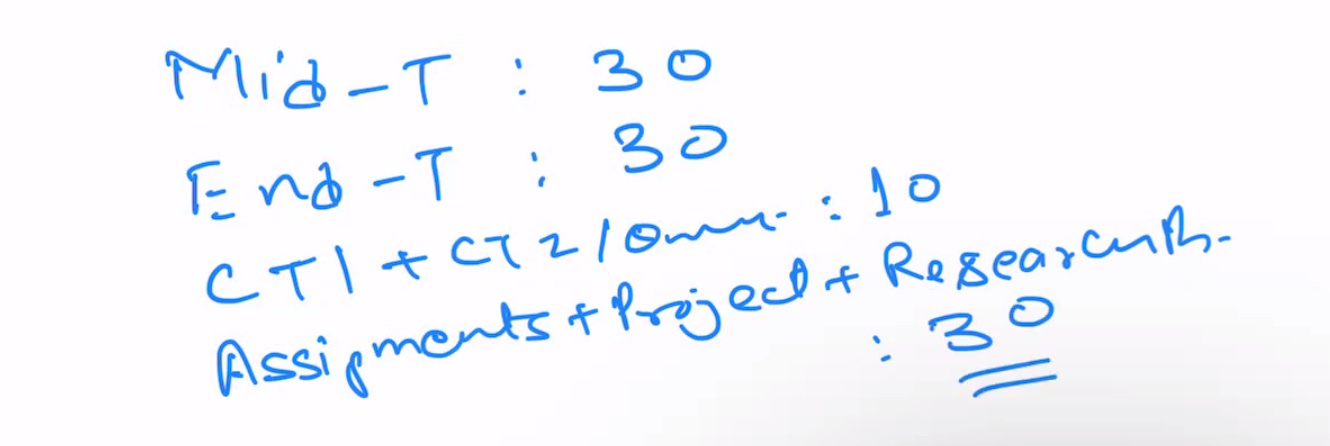 Mid-T : 30
End-T : 30
CT1 + CT2 / : 10
Assigments + Project + Research
: 30